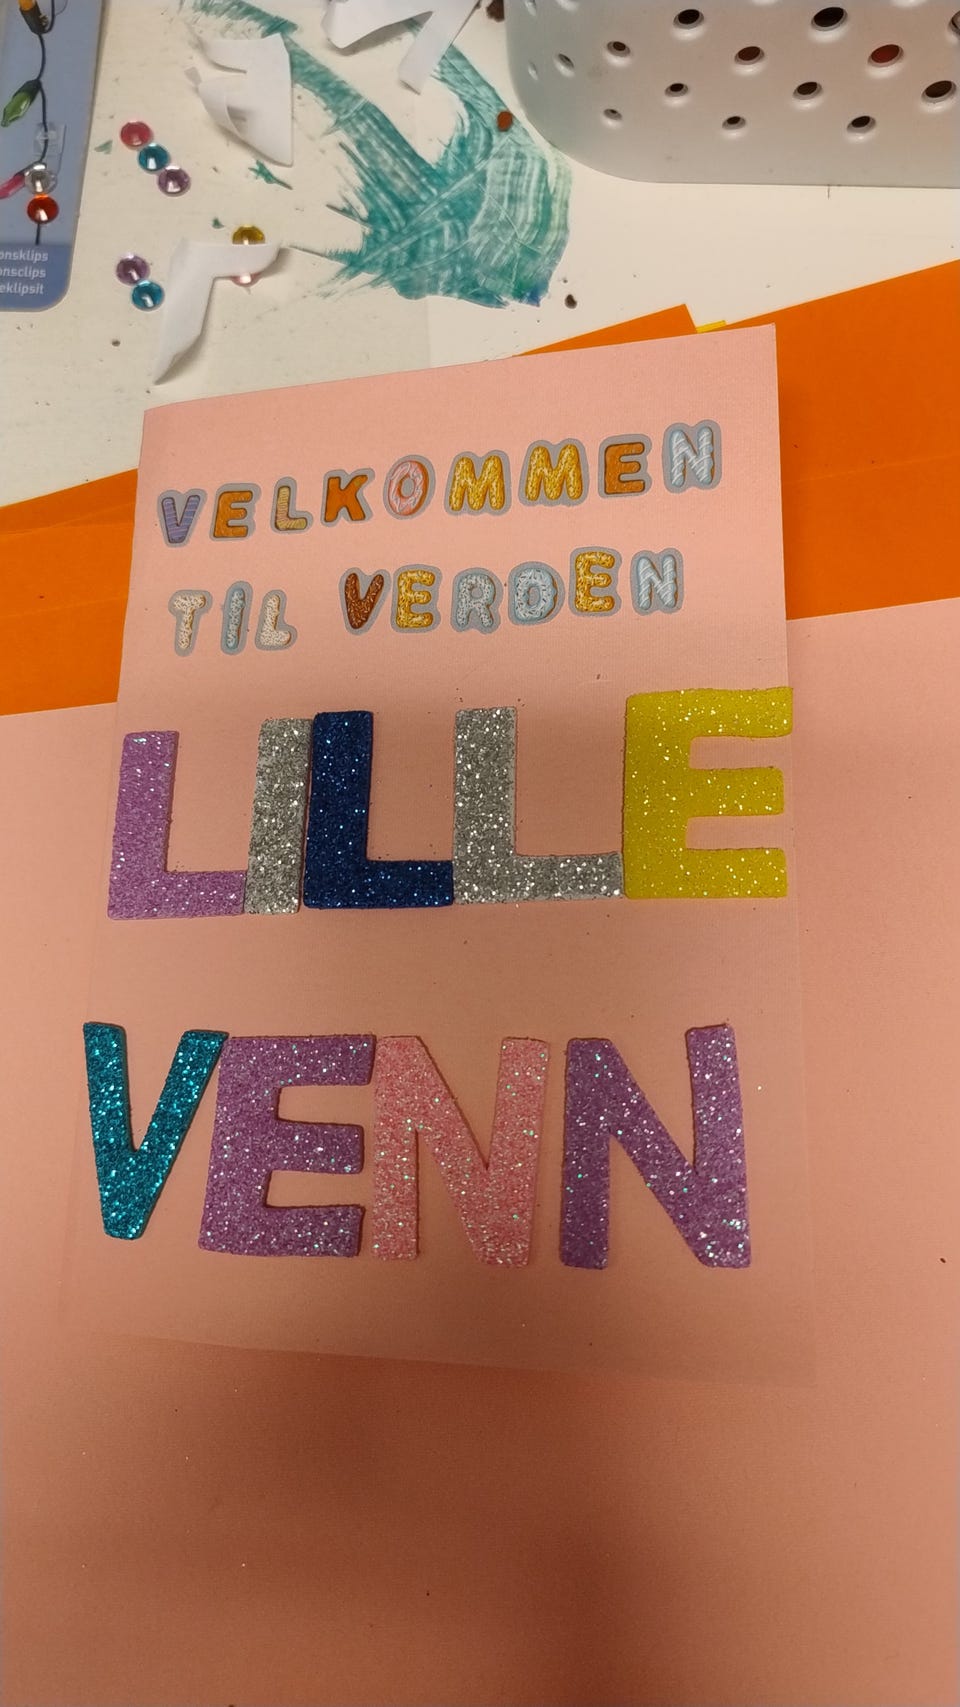 onsklips
onsclips
eklipsit
VELKOMMEN
TIL VERDEN
LILLE
VENN